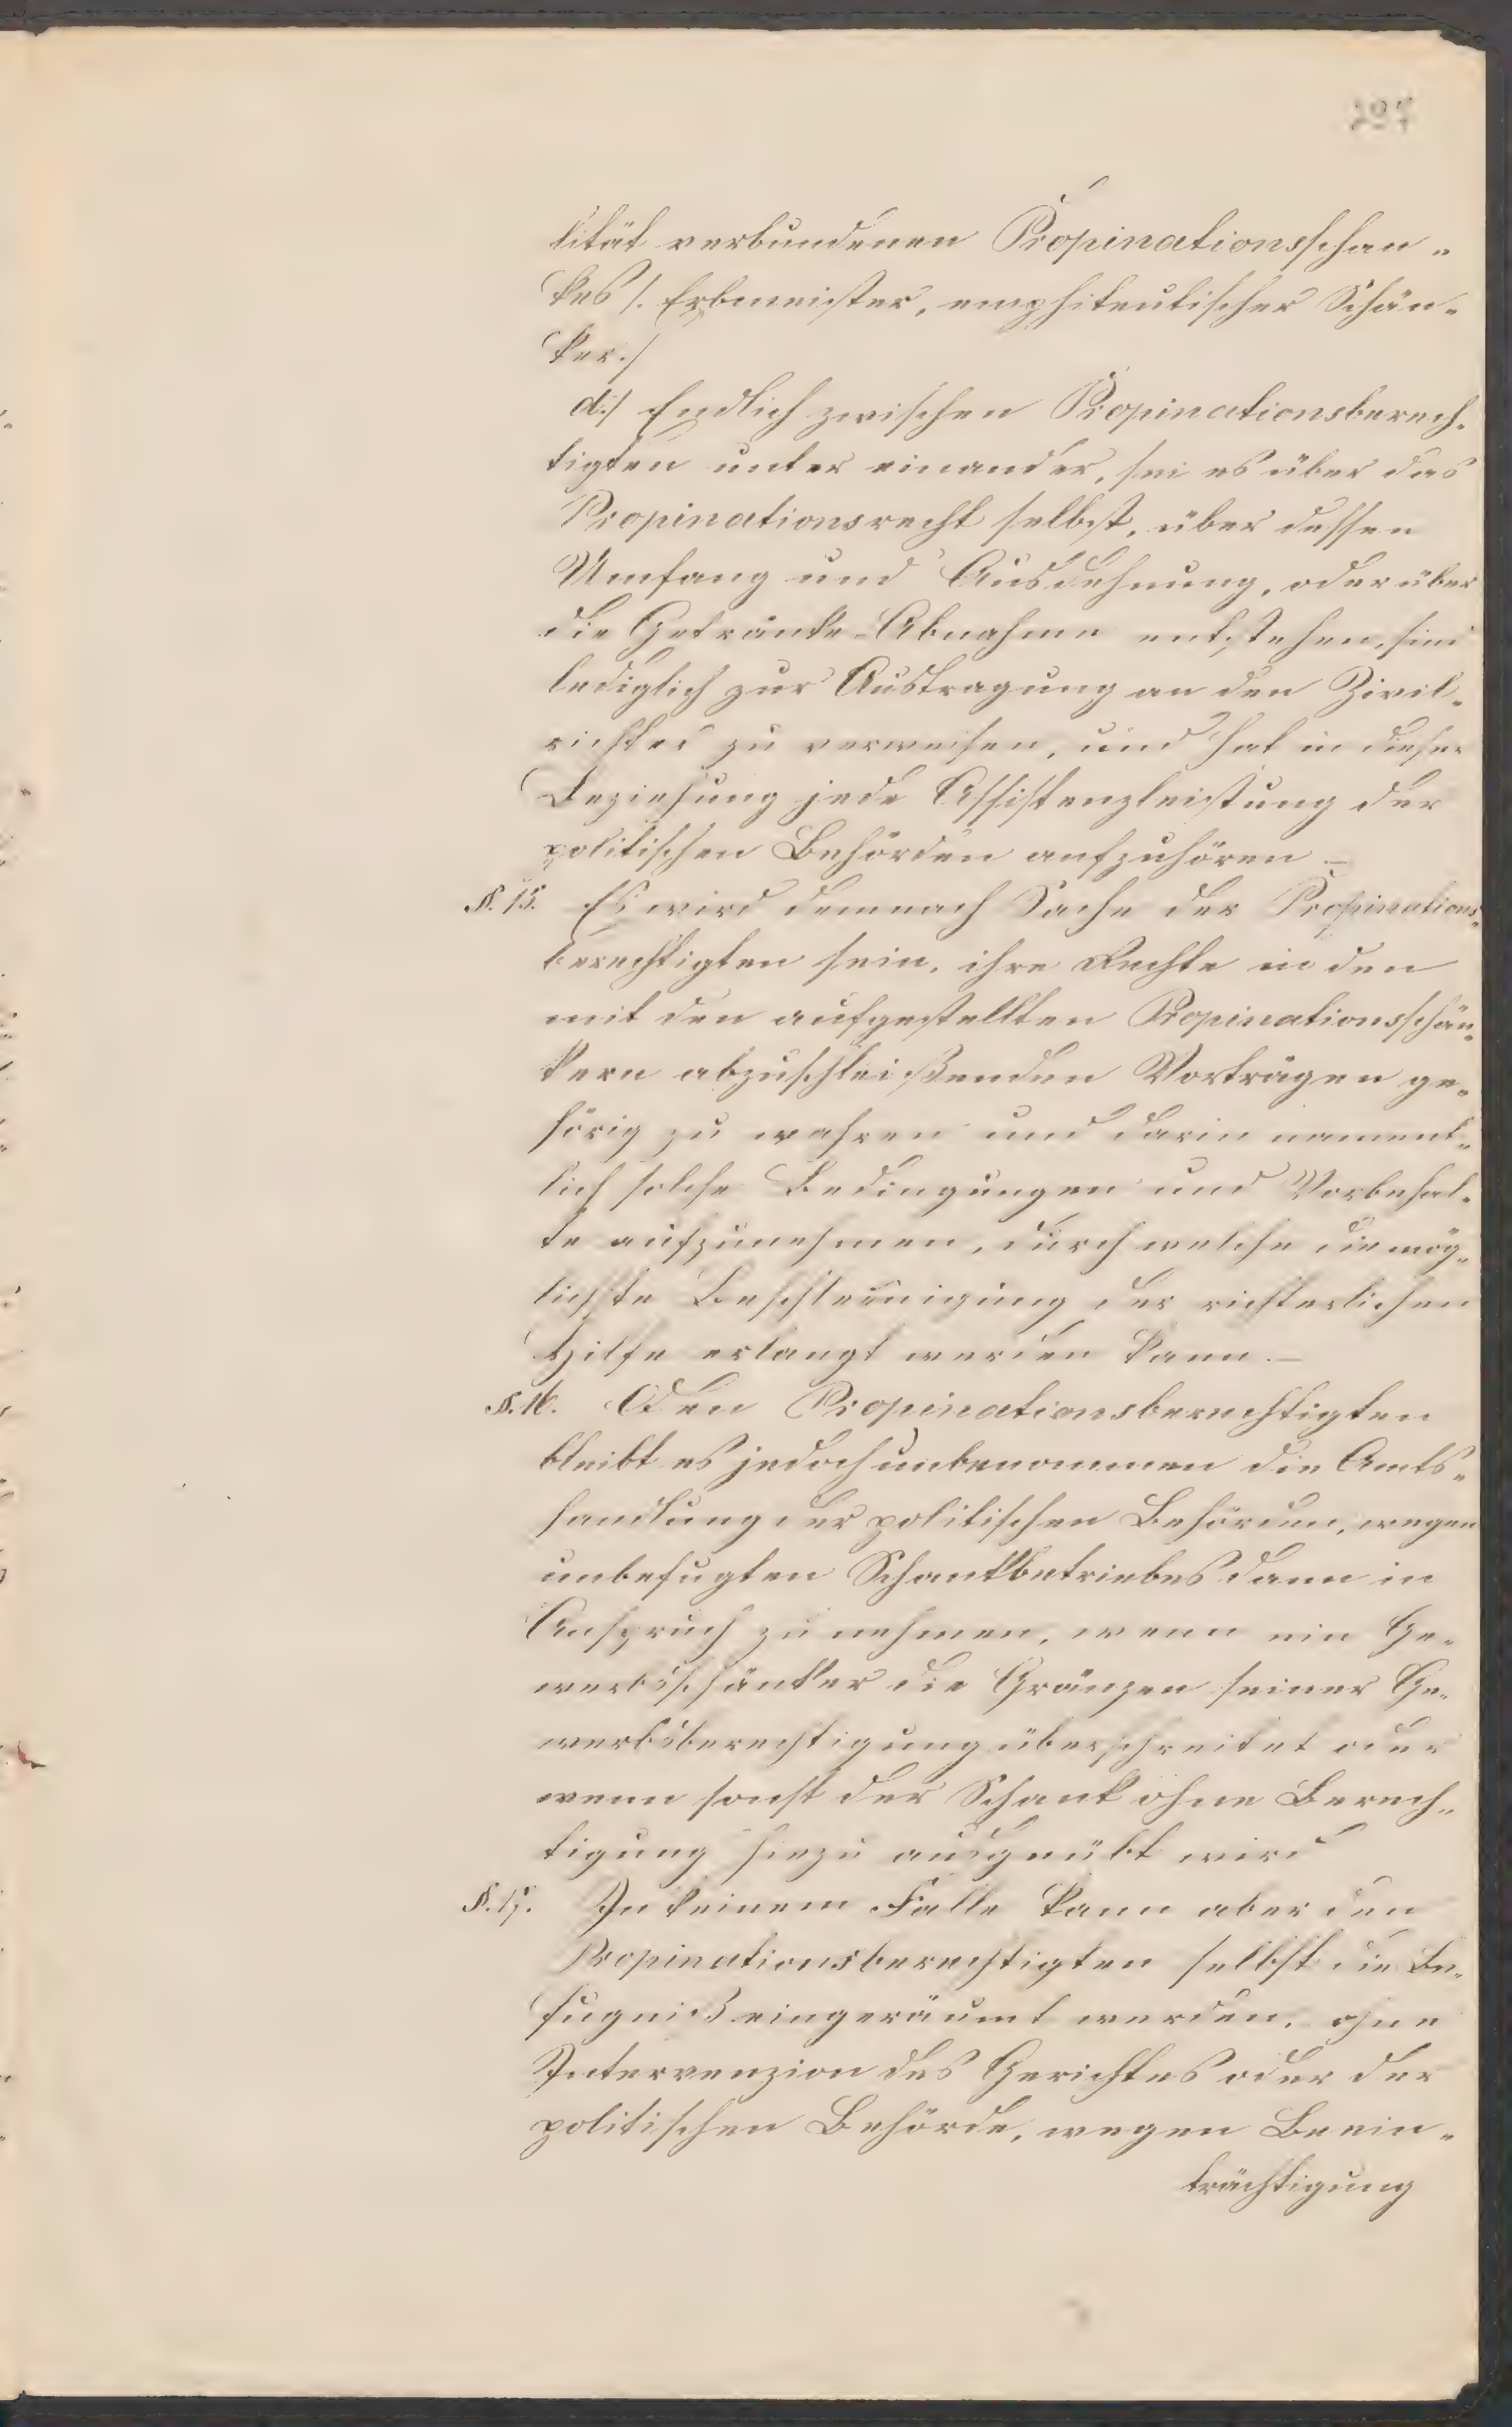 lität verbundenen Propinationsschan„
kes /. Erbmeister, emphiteutischer Schän„
ker./
d./ Endlich zwischen Propinationsberech„
tigten unter einander, sei es über das
Propinationsrecht selbst, über dessen
Umfang und Ausdehnung, oder über
die Getränke-Abnahme entstehen, sind
lediglich zur Austragung an den Zivil„
richter zu verweisen, und hat in dieser
Beziehung jede Assistenzleistung der
politischen Behörden aufzuhören –
§. 15. Es wird demnach Sache der Propinations„
berechtigten sein, ihre Rechte in den
mit den aufgestellten Propinationsschän„
kern abzuschleißenden Vorträgen ge„
hörig zu wahren und darin nament„
lich solche Bedingungen und Vorbehal„
te aufzunehmen, durch welche die mög„
lichste Beschleunigung der richterlichen
Hilfe erlangt werden kann. –
§. 16. Den Propinationsberechtigten
bleibt es jedoch unbenommen die Amts„
handlung der politischen Behörden, wegen
unbefugten Schankbetriebes dann in
Anspruch zu nehmen, wenn ein Ge„
werbsschänker die Gränzen seiner Ge„
werbsberechtigung überschreitet oder
wenn sonst der Schank ohne Berech„
tigung hiezu ausgeübt wird
§. 17. In keinem Falle kann aber den
Propinationsberechtigten selbst die Be„
fugniß eingeräumt werden, ohne
Intervenzion des Gerichtes oder der
politischen Behörde, wegen Beein„
trächtigung